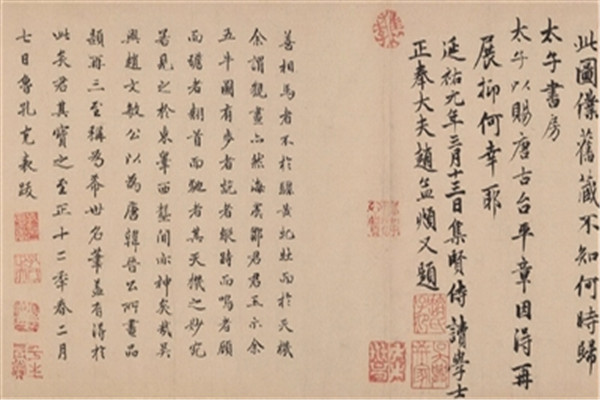 此圖僕舊藏不知何時歸
太子書房
太子以賜唐古台平章因得再
展抑何幸耶
延祐元年三月十三日集賢侍讀學士
正奉大夫趙孟頫又題
善相馬者不於驪黃牝牡而於天機
余謂觀畫亦然海虞鄒君君玉示余
五牛圖有步者齕者縱跱而鳴者顧
而舐者翹首而馳者其天機之妙宛
若見之於東皋西壟間亦神矣哉吳
興趙文敏公以為唐韓晉公所畫品
題再三至稱為希世名筆蓋有得於
此矣君其寶之至正十二年春二月
七日魯孔克表跋